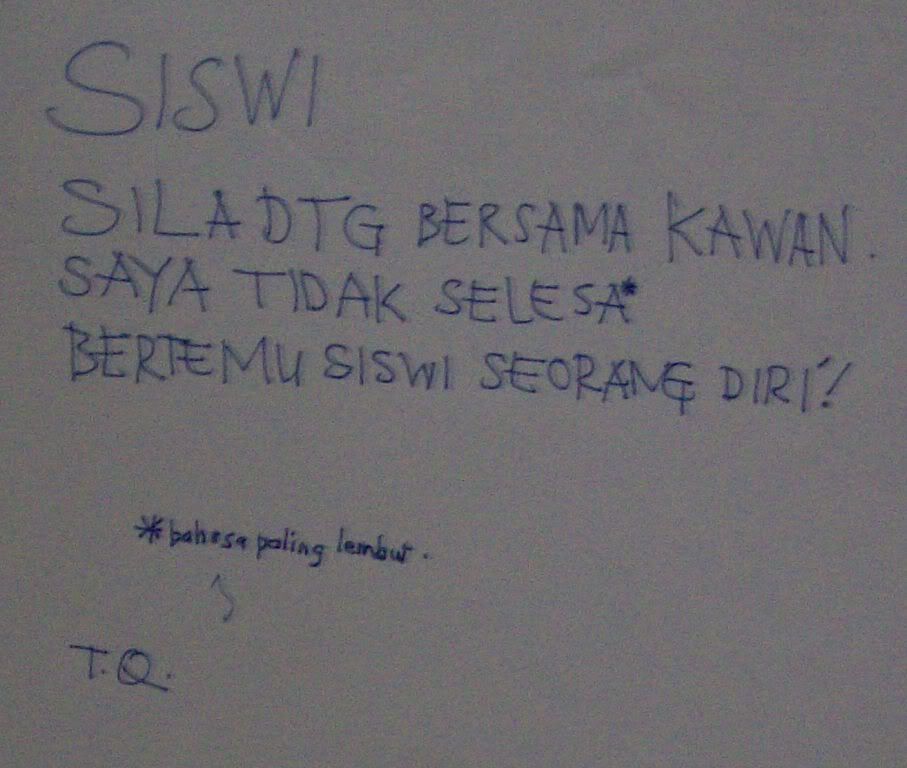 SISWI
SILA DTG BERSAMA KAWAN.
SAYA TIDAK SELESA*
BERTEMU SISWI SEORANG DIRI!
*bahasa paling lembut.
T.Q.